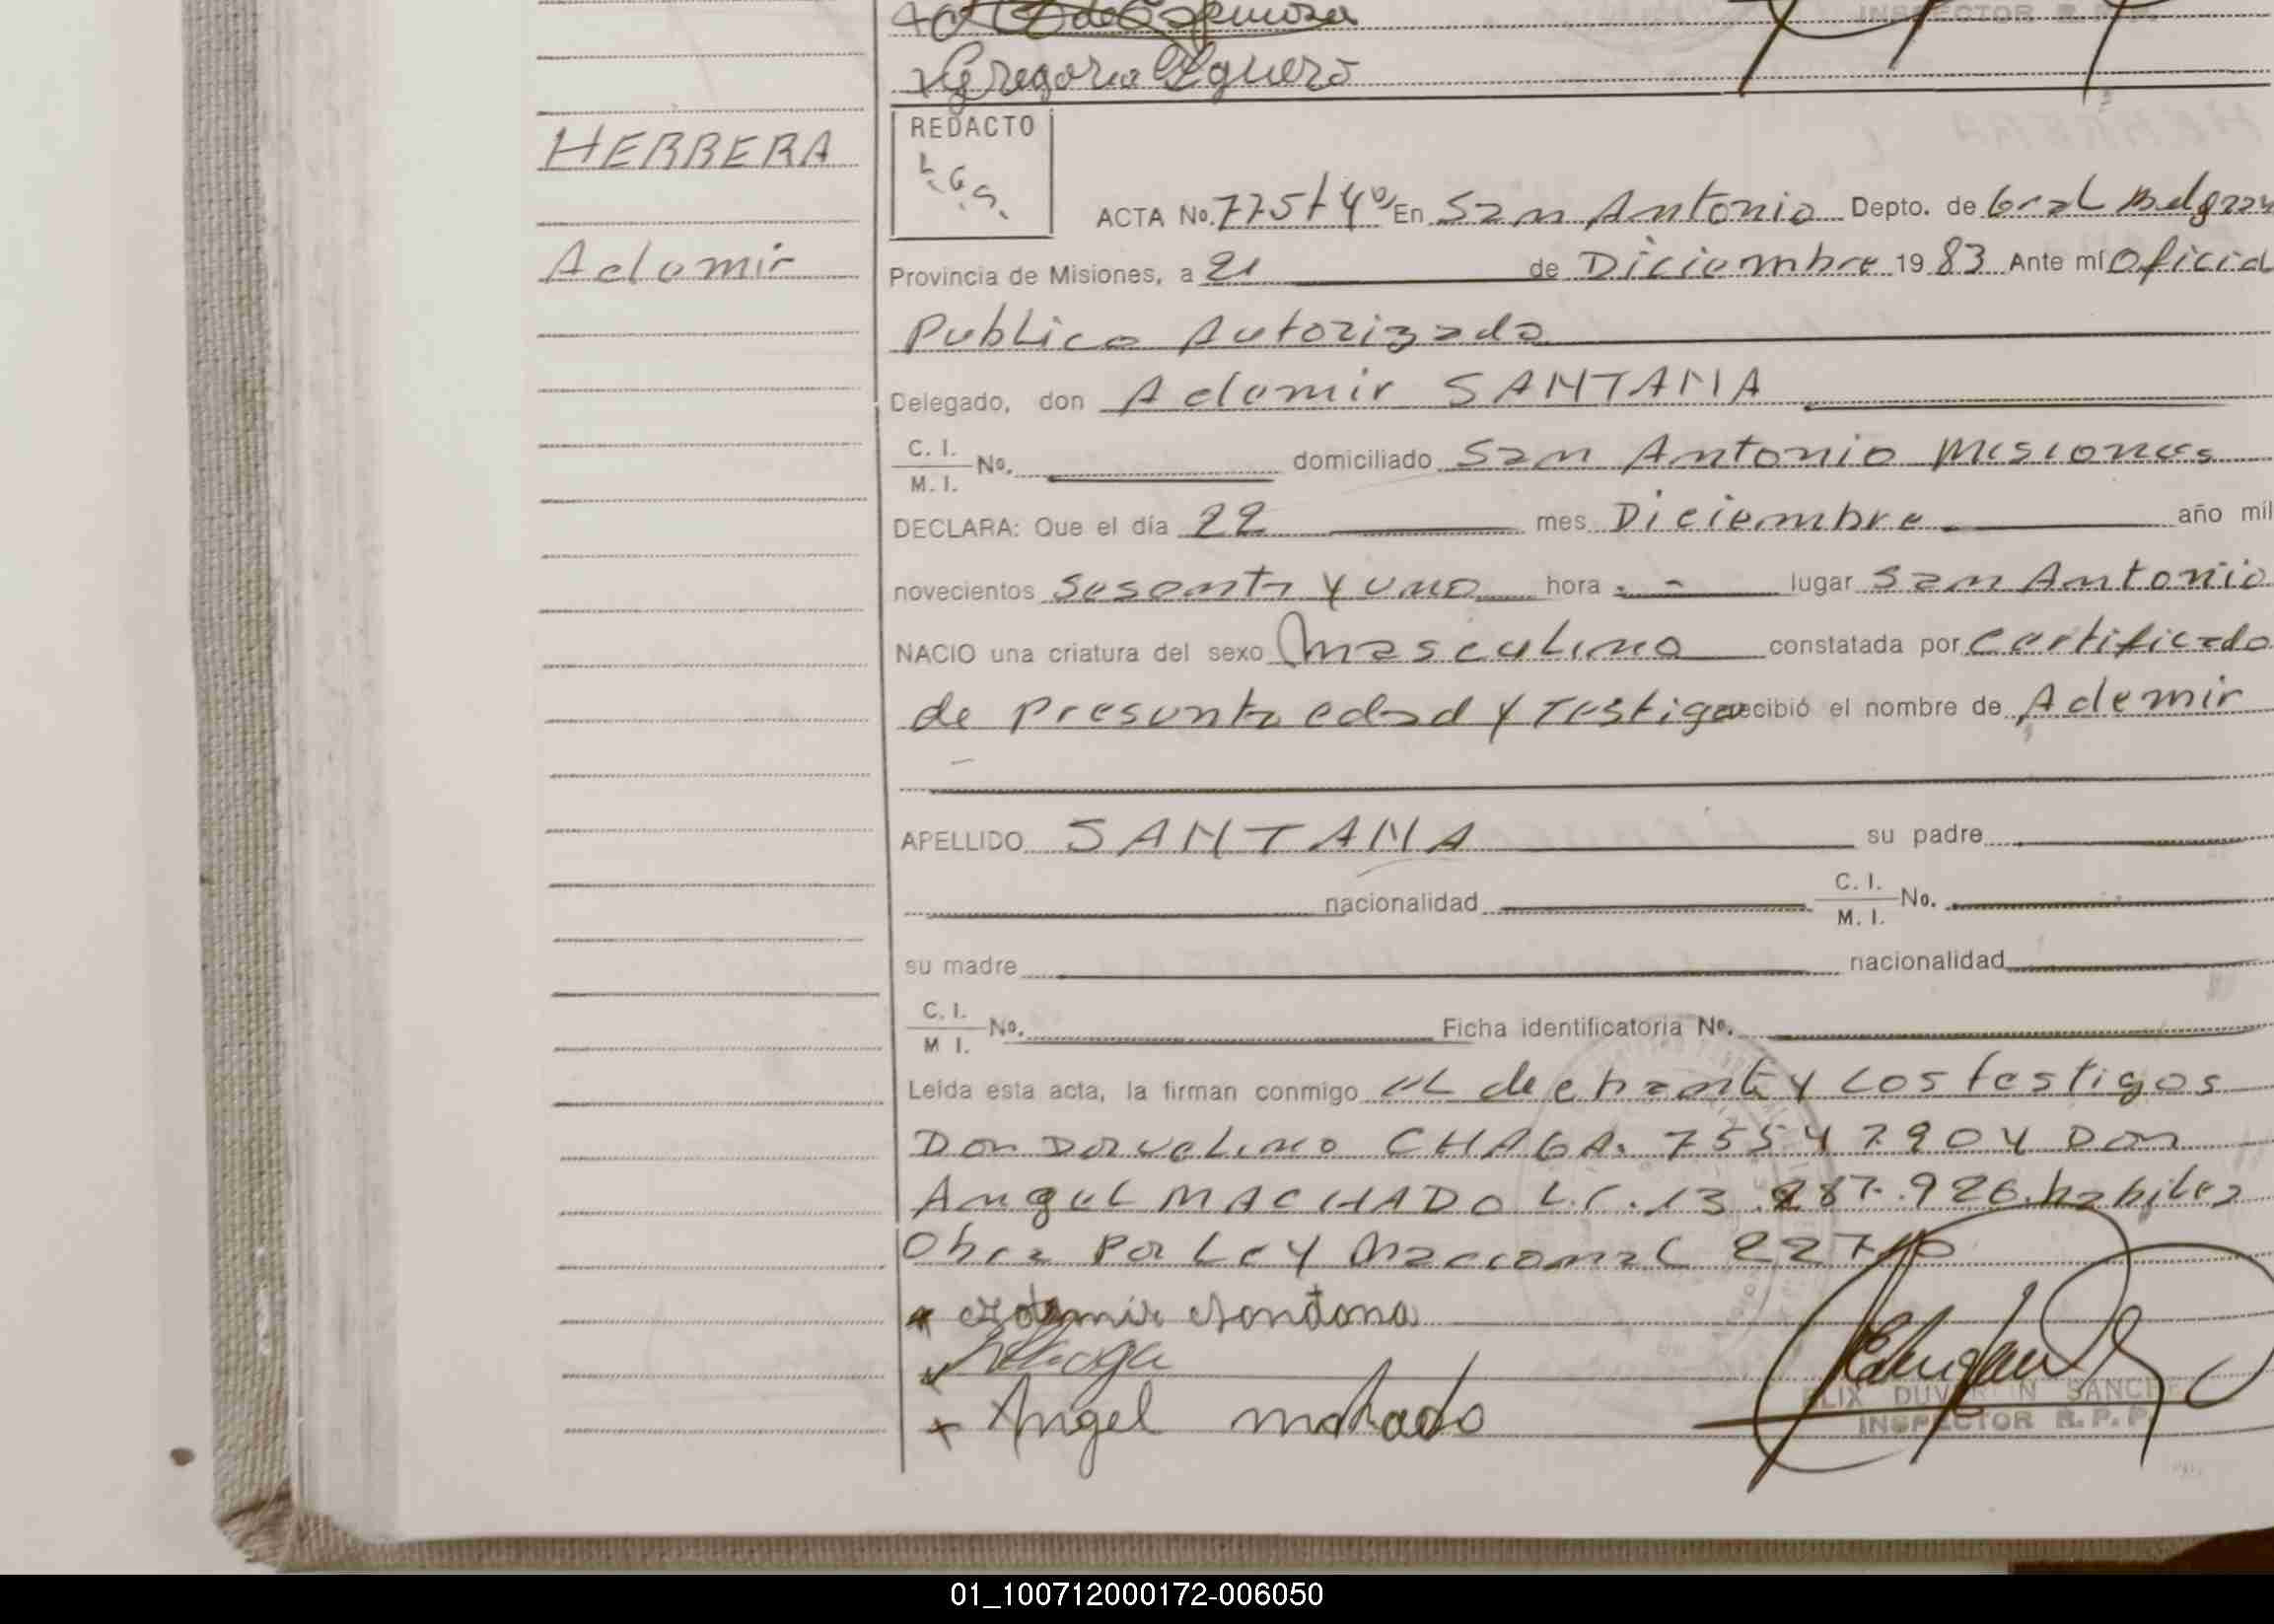 de Espinosa
INSPECTOR R. P. P.
Gregoria Aguero
HERRERA
Ademir
REDACTO
L.G.S.
ACTA No. 775/4º En San Antonio Depto. de Gral Belgran
Provincia de Misiones, a 21 de Diciembre 19 83 Ante mí Oficial
Publico Autorizado
Delegado, don Ademir SANTANA
C. I. / M. I. No. domiciliado San Antonio Misiones
DECLARA: Que el día 22 mes Diciembre año mil
novecientos Sesenta y uno hora - lugar San Antonio
NACIO una criatura del sexo Masculino constatada por Certificado
de Presunta edad y Testigo recibió el nombre de Ademir
APELLIDO SANTANA su padre
nacionalidad C. I. / M. I. No.
su madre nacionalidad
C. I. / M I. No. Ficha identificatoria No.
Leída esta acta, la firman conmigo el y los testigos
Don Dorvelino CHAGA. 75547904 Don
Angel MACHADO L.C. 13.287.926 habiles
Obra Por Ley Nacional
Ademir Santana
Chaga
Angel machado
FELIX DUVARLIN SANCHE
INSPECTOR R. P. P.
01_100712000172-006050